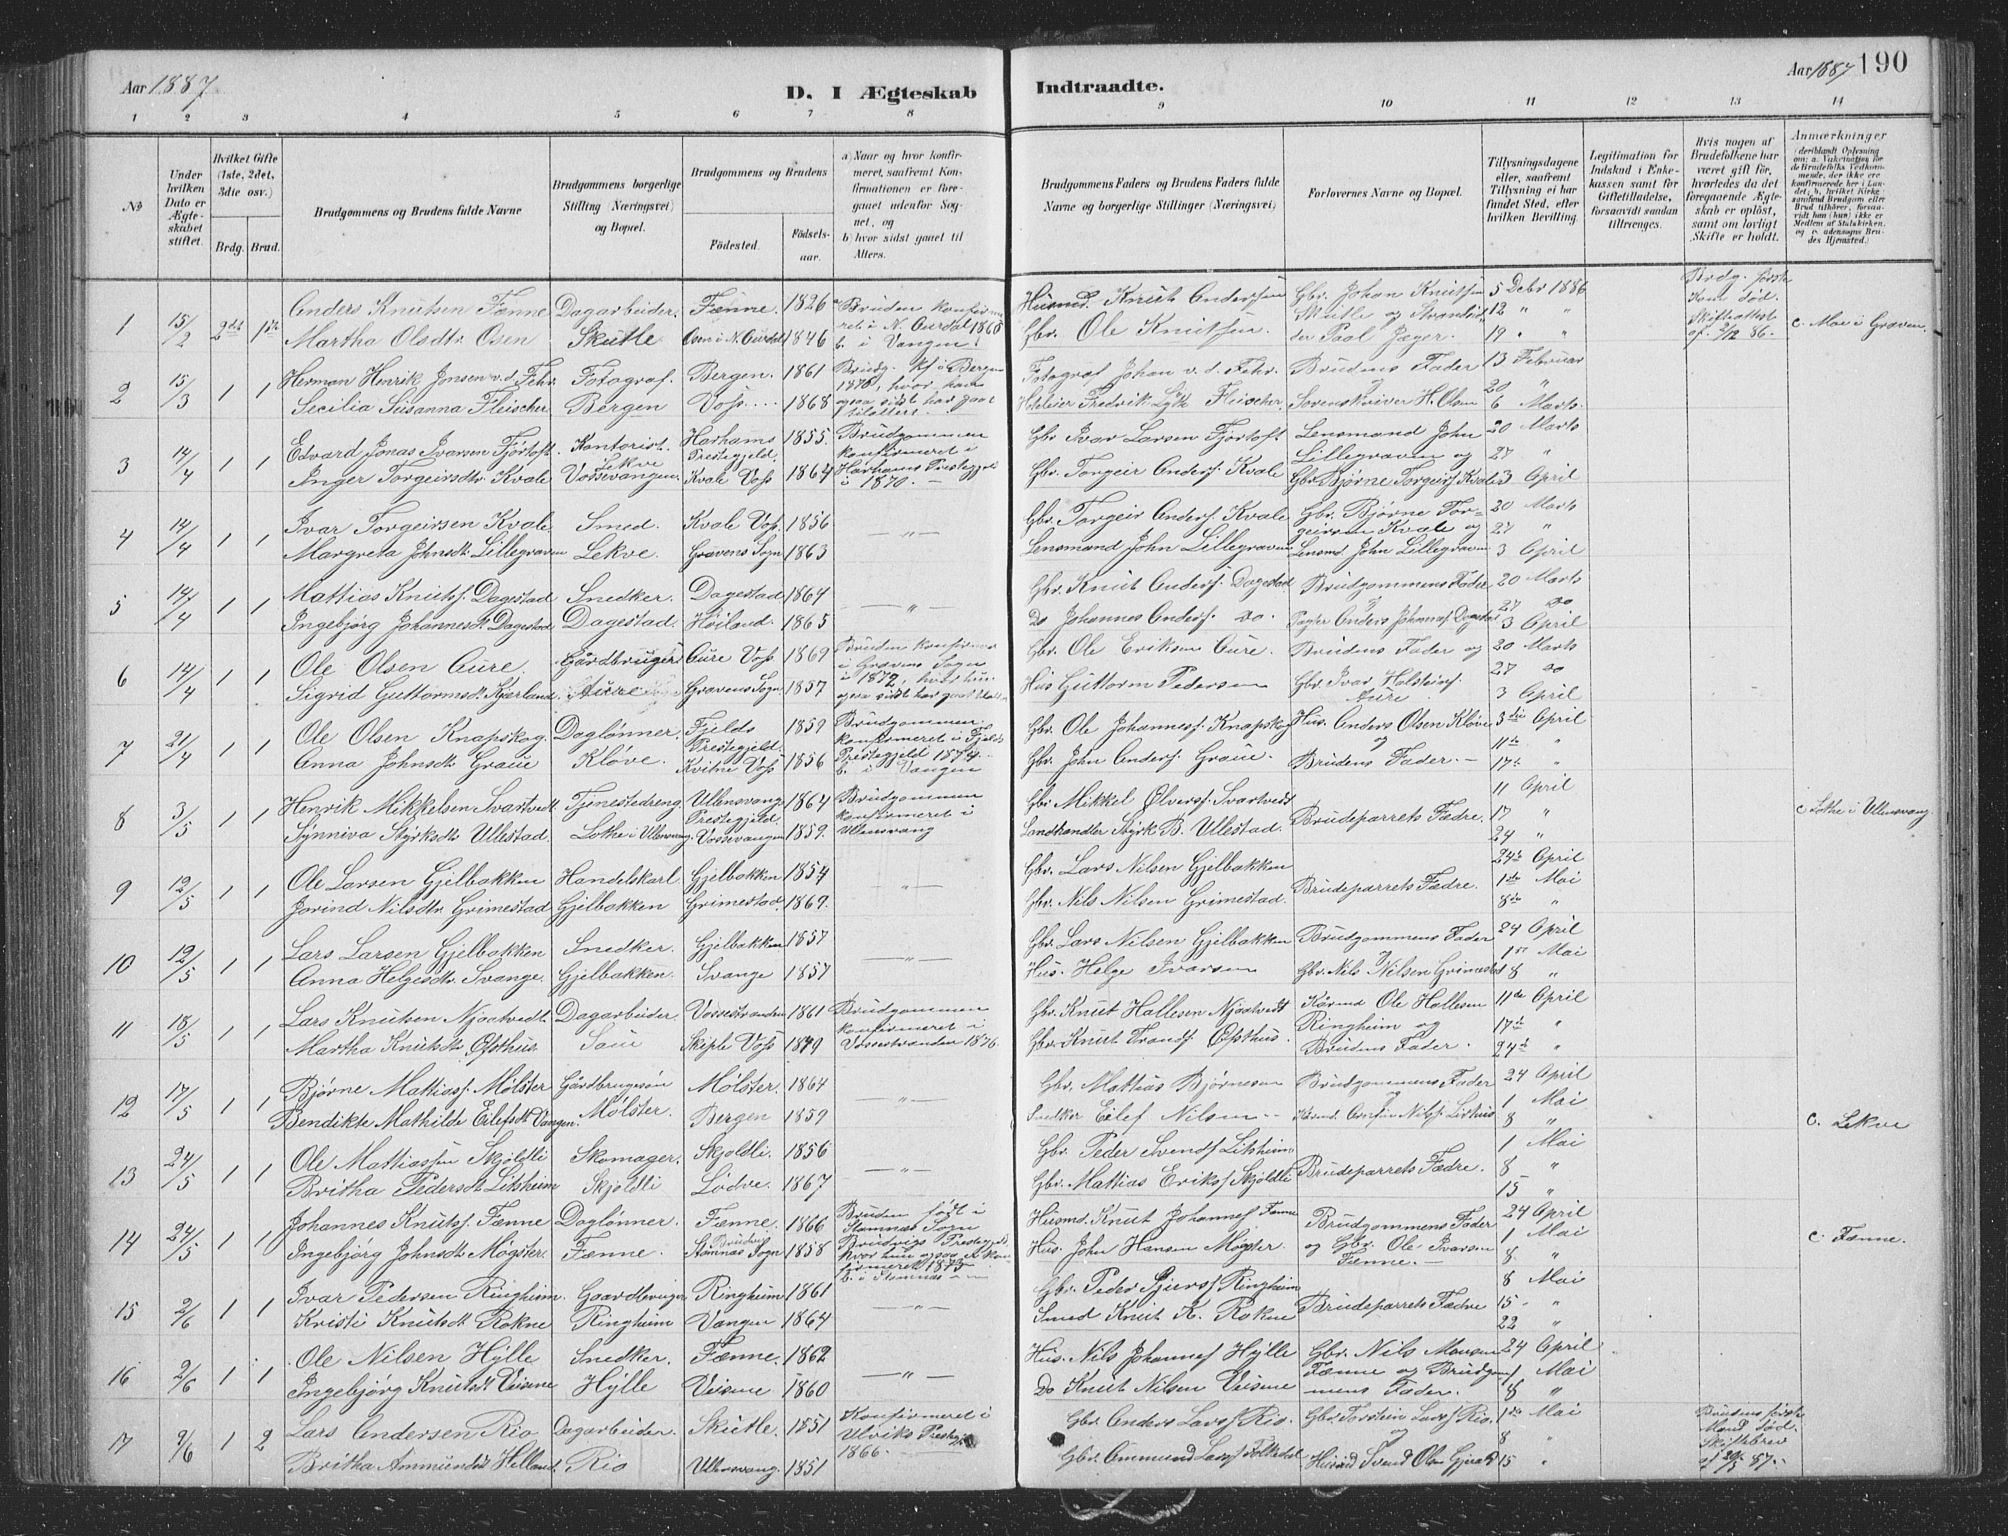 Aar 1887
D. I Ægteskab
Indtraadte.
Aar 1887 190
1 2 3 4 5 6 7 8 9 10 11 12 13 14
No
Under hvilken Dato er Ægteskabet stiftet.
Hvilket Gifte (1ste, 2det, 3die osv.)
Brdg. Brud.
Brudgommens og Brudens fulde Navne
Brudgommens borgerlige Stilling (Næringsvei) og Bopæl.
Brudgommens og Brudens
Fødested. Fødselsaar.
a) Naar og hvor konfirmeret, saafremt Konfirmationen er foregaaet udenfor Sognet, og
b) hvor sidst gaaet til Alters.
Brudgommens Faders og Brudens Faders fulde Navne og borgerlige Stillinger (Næringsvei)
Forlovernes Navne og Bopæl.
Tillysningsdagene eller, saafremt Tillysning ei har fundet Sted, efter hvilken Bevilling.
Legitimation for Indskud i Enkekassen samt for Giftetilladelse, forsaavidt saadan tiltrænges.
Hvis nogen af Brudefolkene har været gift før, hvorledes da det foregaaende Ægteskab er opløst, samt om lovligt Skifte er holdt.
Anmærkninger
1 15/2 2det 1ste Anders Knutsen Fænne Dagarbeider Fænne 1826 a Bruden konfirmeret i N. Aurdal 1860 Husmd. Knut Andersen Gbr. Johan Knutsen 5 Debr 1886 Brdg. første Kone død. Skifteattest af 2/12 86.
Martha Olsdtr. Osen Skutle Osen i N. Aurdal 1846 b. i Vangen Gbr. Ole Knutsen Skutle og Paal Jæger. 12 " " 19 " " c. Mæ i Graven
2 15/3 1 1 Herman Henrik Jonsen v.d. Fehr Fotograf. Bergen. 1861 Brudg. kf i Bergen 1876, hvor han ogsaa sidst har gaaet Fotograf Johan v. d. Fehr. Brudens Fader 13 Februar
Secilia Susanna Fleischer Bergen Voss 1868 Fredrik Lyth Fleischer. og Sorenskriver H. Olsen 20 " 6 Marts
3 14/4 1 1 Edvard Jonas Ivarsen Fjørtoft Kontorist. Harhams Prestegjeld 1855 Brudgommen konfirmeret i Harhams Prestegjeld i 1870. Gbr. Ivar Larsen Fjørtoft Lensmand John Lillegraven og 20 Marts 27 "
Inger Torgeirsdtr Kvale Lekve Vossevangen Kvale Voss 1864 Gbr. Torgeir Anderss. Kvale Gbr Bjørne Torgeirs. Kvale 3 April
4 14/4 1 1 Ivar Torgeirsen Kvale Smed. Kvale Voss. 1856 Gbr. Torgeir Anderss. Kvale Gbr. Bjørne Torgeirsen Kvale og 20 Marts 27 "
Margreta Johnsdt. Lillegraven Lekve. Gravens Sogn 1863 Lensmand John Lillegraven Lensmd. John Lillegraven 3 April
5 14/4 1 1 Mattias Knutss. Dagestad Snedker. Dagestad 1864 Gbr. Knut Anderss. Dagestad Brudgommens Fader 20 Marts
Ingebjørg Johannesdt Dagestad Dagestad. Høiland. 1865 Do Johannes Anderss. do. Anders Johanness Dagestad 27 do 3 April
6 14/4 1 1 Ole Olsen Aure Gårdbruger Aure Voss 1869 Bruden konfirmeret i Gravens Sogn i 1872, hvor hun ogsaa sidst har gaaet Gbr. Ole Eriksen Aure. Brudens Fader og 20 Marts
Sigrid Guttormsdt. Kjærland Aure Gravens Sogn 1857 Hus Guttorm Pedersen Gbr. Ivar Holsteins. Aure. 27 do 3 April
7 21/4 1 1 Ole Olsen Knapskog Daglønner. Fjelds Prestegjeld. 1859 Brudgommen konfirmeret i Fjelds Prestegjeld 1874. Gbr. Ole Johanness. Knapskog Hus. Anders Olsen Kløve 3die April
Anna Johnsdt. Graue Kløve. Kvitne Voss 1856 b. i Vangen Gbr. John Anderss. Graue. og Brudens Fader. 11te " 17. "
8 3/5 1 1 Henrik Mikkelsen Svartvedt Tjenestedreng Ullensvangs Prestegjeld 1864 Brudgommen konfirmeret i Ullensvang Gbr Mikkel Ølvers. Svartvedt Brudeparrets Fædre. 11 April 17 "
Synniva Styrksdt Ullestad. Lote i Ullensvang. Vossevangen 1859. Landhandler Styrk B. Ullestad. 24 " c Lothe i Ullensvang.
9 12/5 1 1 Ole Larsen Gjelbakken Handelskarl Gjelbakken 1854 Gbr. Lars Nilsen Gjelbakken Brudeparrets Fædre. 24de April 1ste Mai
Jorind Nilsdtr. Grimestad Gjelbakken Grimestad. 1869. Gbr. Nils Nilsen Grimestad. 8de "
10 12/5 1 1 Lars Larsen Gjelbakken Snedker. Gjelbakken 1857 Gbr. Lars Nilsen Gjelbakken Brudgommens Fader 24 April 1ste Mai
Anna Helgesdtr. Svange. Gjelbakken. Svange 1857 Hus. Helge Ivarsen og Gbr. Nils Nilsen Grimestad 8 "
11 18/5 1 1 Lars Knutsen Njaatvedt Dagarbeider. Vossestranden 1861 Brudgommen konfirmeret i Vossestranden 1876. Gbr. Knut Hallesen Njaatvedt Kårmd Ole Hallesen Ringheim og 11te April 17de "
Martha Knutsdt. Øfsthus Saue Skiple Voss 1849 Gbr. Knut Øfsthus. Brudens Fader. 24de "
12 17/5 1 1 Bjørne Mattiass. Mølster Gårdbrugesøn Mølster. 1864 Gbr. Mathias Bjørnesen Brudgommens Fader 24 April 1 Mai
Bendikte Mathilde Eilefsdt Vangen. Mølster. Bergen 1859 Snedker Eilef Nilsen 8 " c. Lekve
13 24/5 1 1 Ole Mattiassen Skjoldli Skomager. Skjoldli. 1856 Gbr. Peder Svends. Litsheim Brudeparrets Fædre. 1 Mai 8 "
Britha Pedersdt Litsheim Skjoldli Lodve. 1867 Gbr. Mattias Eriks. Skjoldli 15 "
14 24/5 1 1 Johannes Knutss. Fænne Daglønner. Fænne. 1866 Bruden født i Stamnæs Sogn Bruvigs Prestegjeld hvor hun ogsaa er konfirmeret 1873. b. i Stamnæs Husmd. Knut Johanness Fænne Brudgommens Fader 24 April 1 Mai
Ingebjørg Johnsdt. Møgster. Fænne. Stamnæs Sogn 1858 Hus. John Hansen Møgster. og Gbr. Ole Ivarsen Fænne. 8 " c. Fænne.
15 2/6 1 1 Ivar Pedersen Ringheim. Gaardbruger Ringheim 1861 Gbr. Peder Ringheim Brudeparrets Fædre 8 Mai 15 "
Kristi Knutsdt Rokne Ringheim Vangen 1864 Smed Knut K. Rokne 22 "
16 2/6 1 1 Ole Nilsen Hylle Snedker. Fænne. 1862 Hus. Nils Johanness Hylle Gbr. Nils Monsen Fænne og Brudgommens Fader. 24 April 1 Mai
Ingebjørg Knutsdt. Veisene Hylle Veisene 1860 Do Knut Nilsen Veisene 8 "
17 9/6 1 2 Lars Andersen Rio Dagarbeider. Skutle 1851 Konfirmeret i Ulviks Prestegj. 1866. Gbr. Anders Larss Rio. Gbr. Torstein Larss Rio. 1ste Mai 8 " Brudens første Mand død. Skiftebrev af 20/5 87.
Britha Ammundsdt Helland Rio Ullensvang. 1851 Gbr. Ammund Larss Folkedal og Svend Olsen 15 "